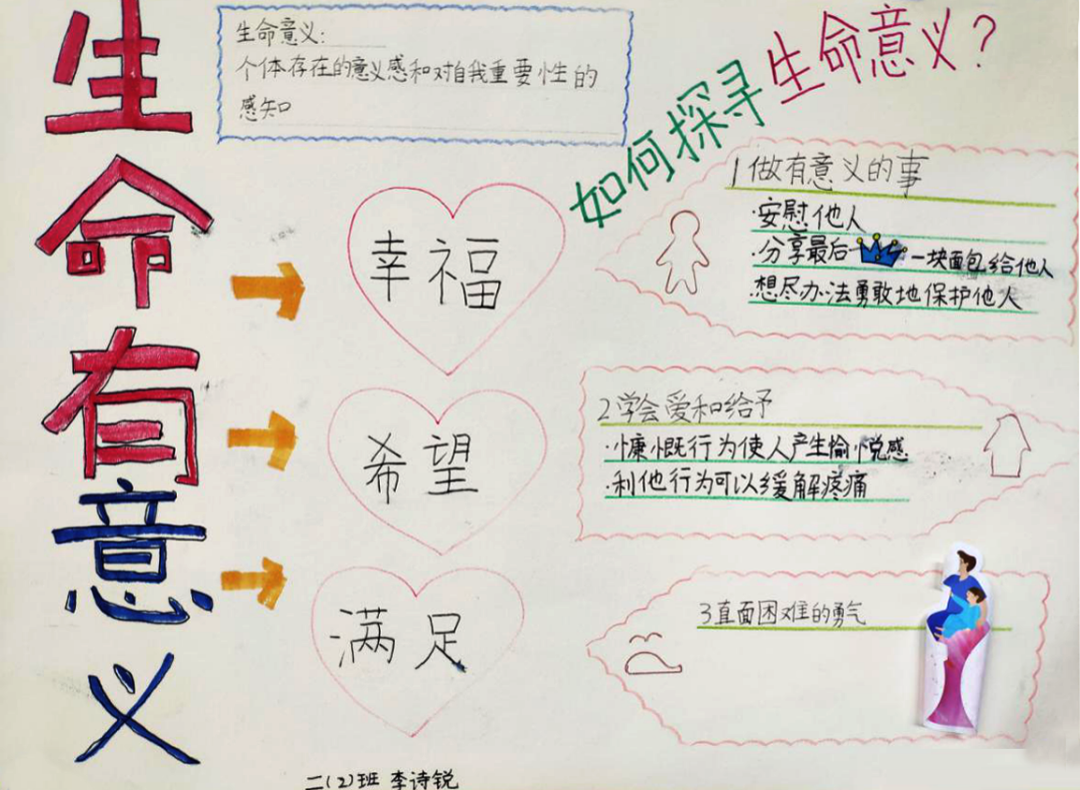 生命有意义
生命意义:
个体存在的意义感和对自我重要性的
感知
幸福
希望
满足
如何探寻生命意义?
1做有意义的事
·安慰他人
·分享最后一块面包给他人
·想尽办法勇敢地保护他人
2学会爱和给予
·慷慨行为使人产生愉悦感
·利他行为可以缓解疼痛
3直面困难的勇气
二(2)班 李诗锐